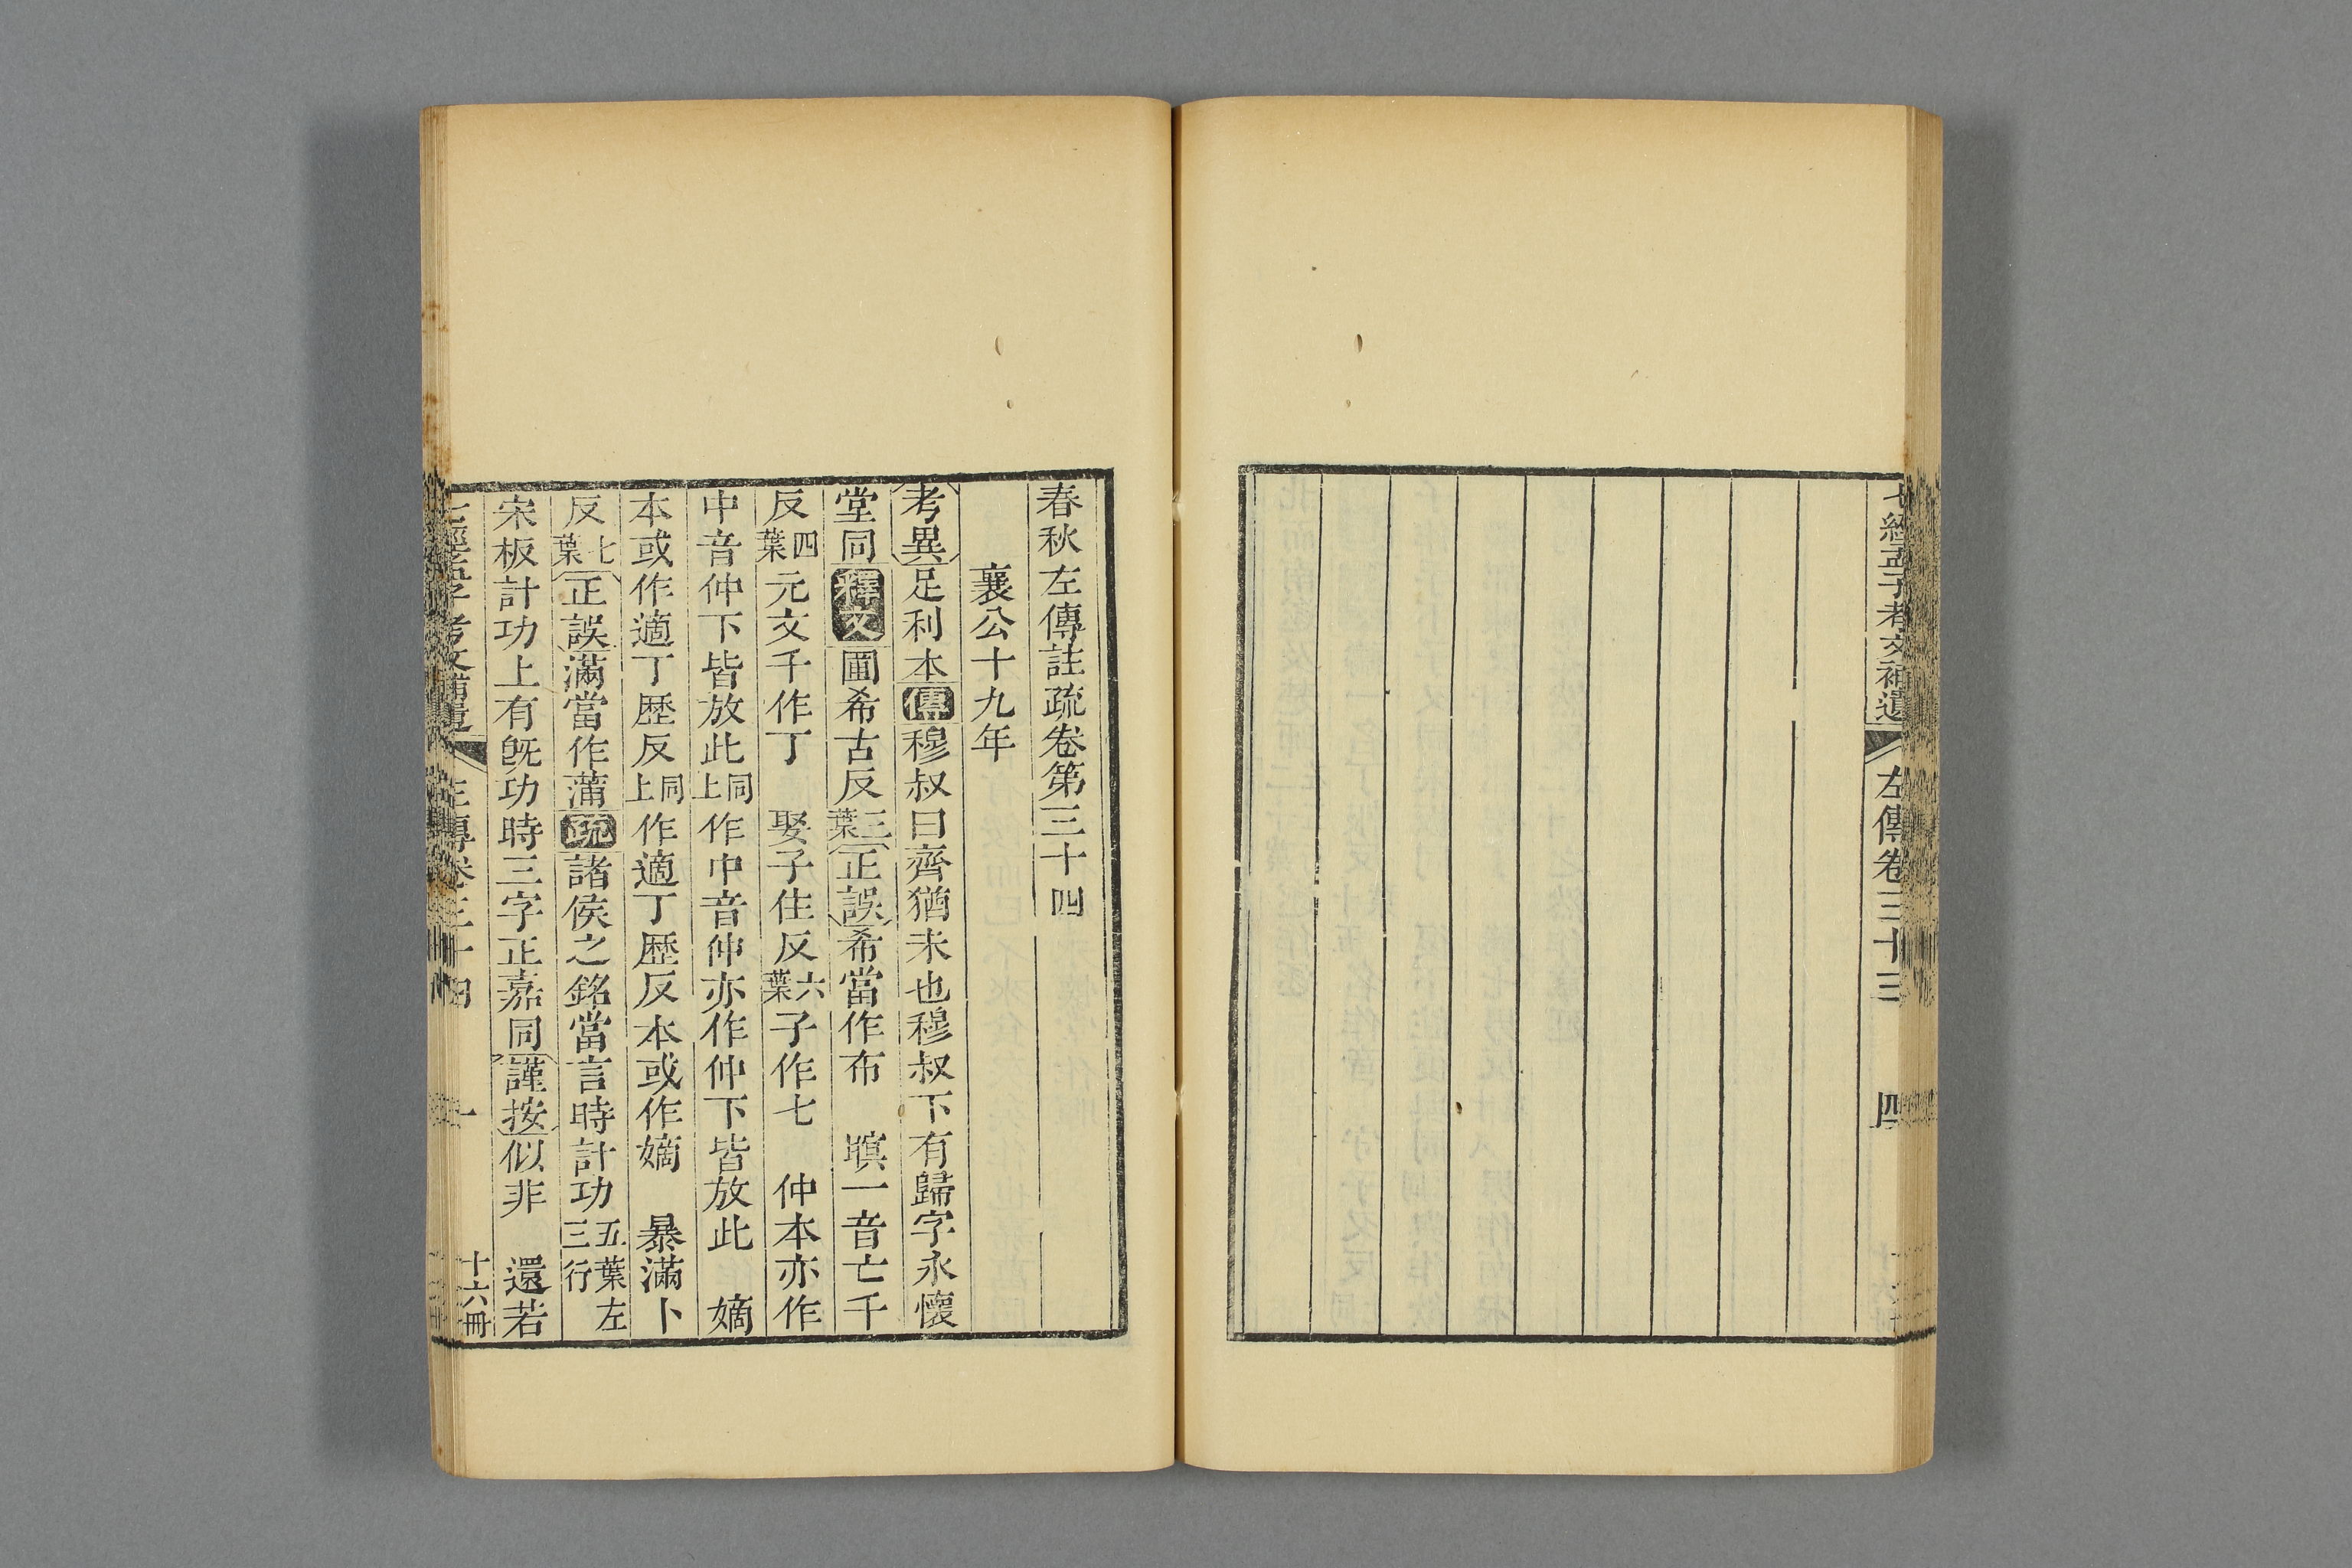 七經孟子考文補遺 左傳卷三十三 四
春秋左傳註疏卷第三十四
襄公十九年
考異足利本傳穆叔曰齊猶未也穆叔下有歸字永懷
堂同釋文圃希古反三葉正誤希當作布 瞑一音亡千
反四葉元文千作丁 娶子住反六葉子作七 仲本亦作
中音仲下皆放此同上作中音仲亦作仲下皆放此 嫡
本或作適丁歷反同上作適丁歷反本或作嫡 暴滿卜
反七葉正誤滿當作蒲疏諸侯之銘當言時計功五葉左三行
宋板計功上有旣功時三字正嘉同謹按似非 還若
七經孟子考文補遺 左傳卷三十四 一 十六冊